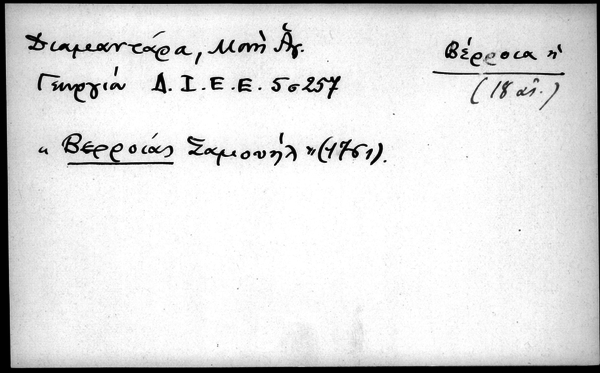 Διαμαντάρα, Μονὴ Ἁγ.
Βέρροια ἡ
Γεωργίου Δ.Ι.Ε.Ε. 5σ257
(18 αἰ.)
"Βερροίας Σαμουήλ" (1761).